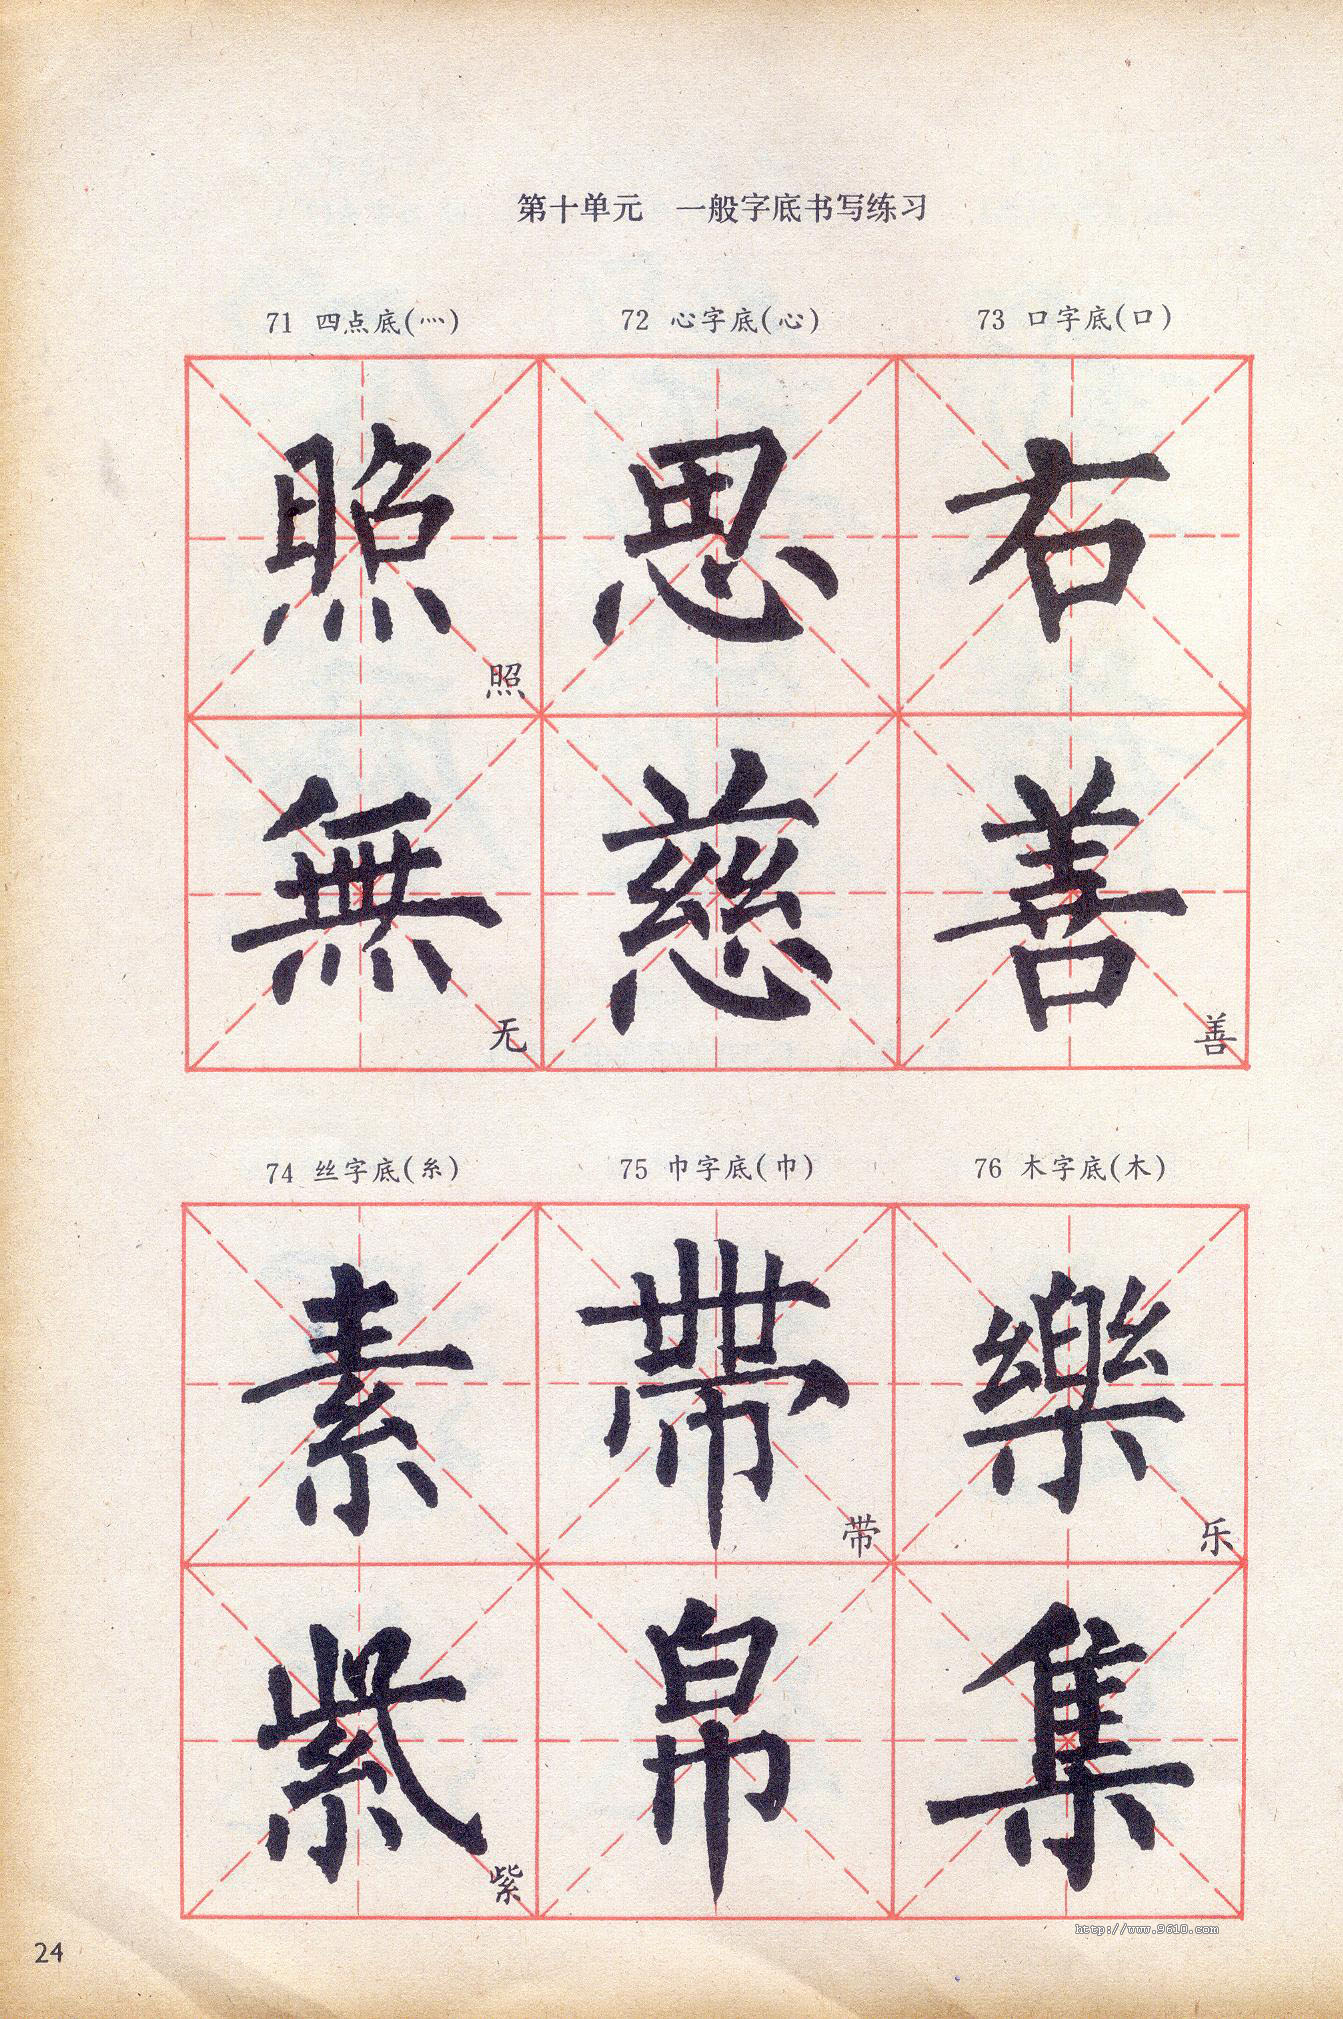 第十单元 一般字底书写练习
71 四点底(灬) 72 心字底(心) 73 口字底(口)
照 思 右
照
無 慈 善
无 善
74 丝字底(糹) 75 巾字底(巾) 76 木字底(木)
素 帶 樂
带 乐
紫 帛 集
紫
http://www.9610.com
24